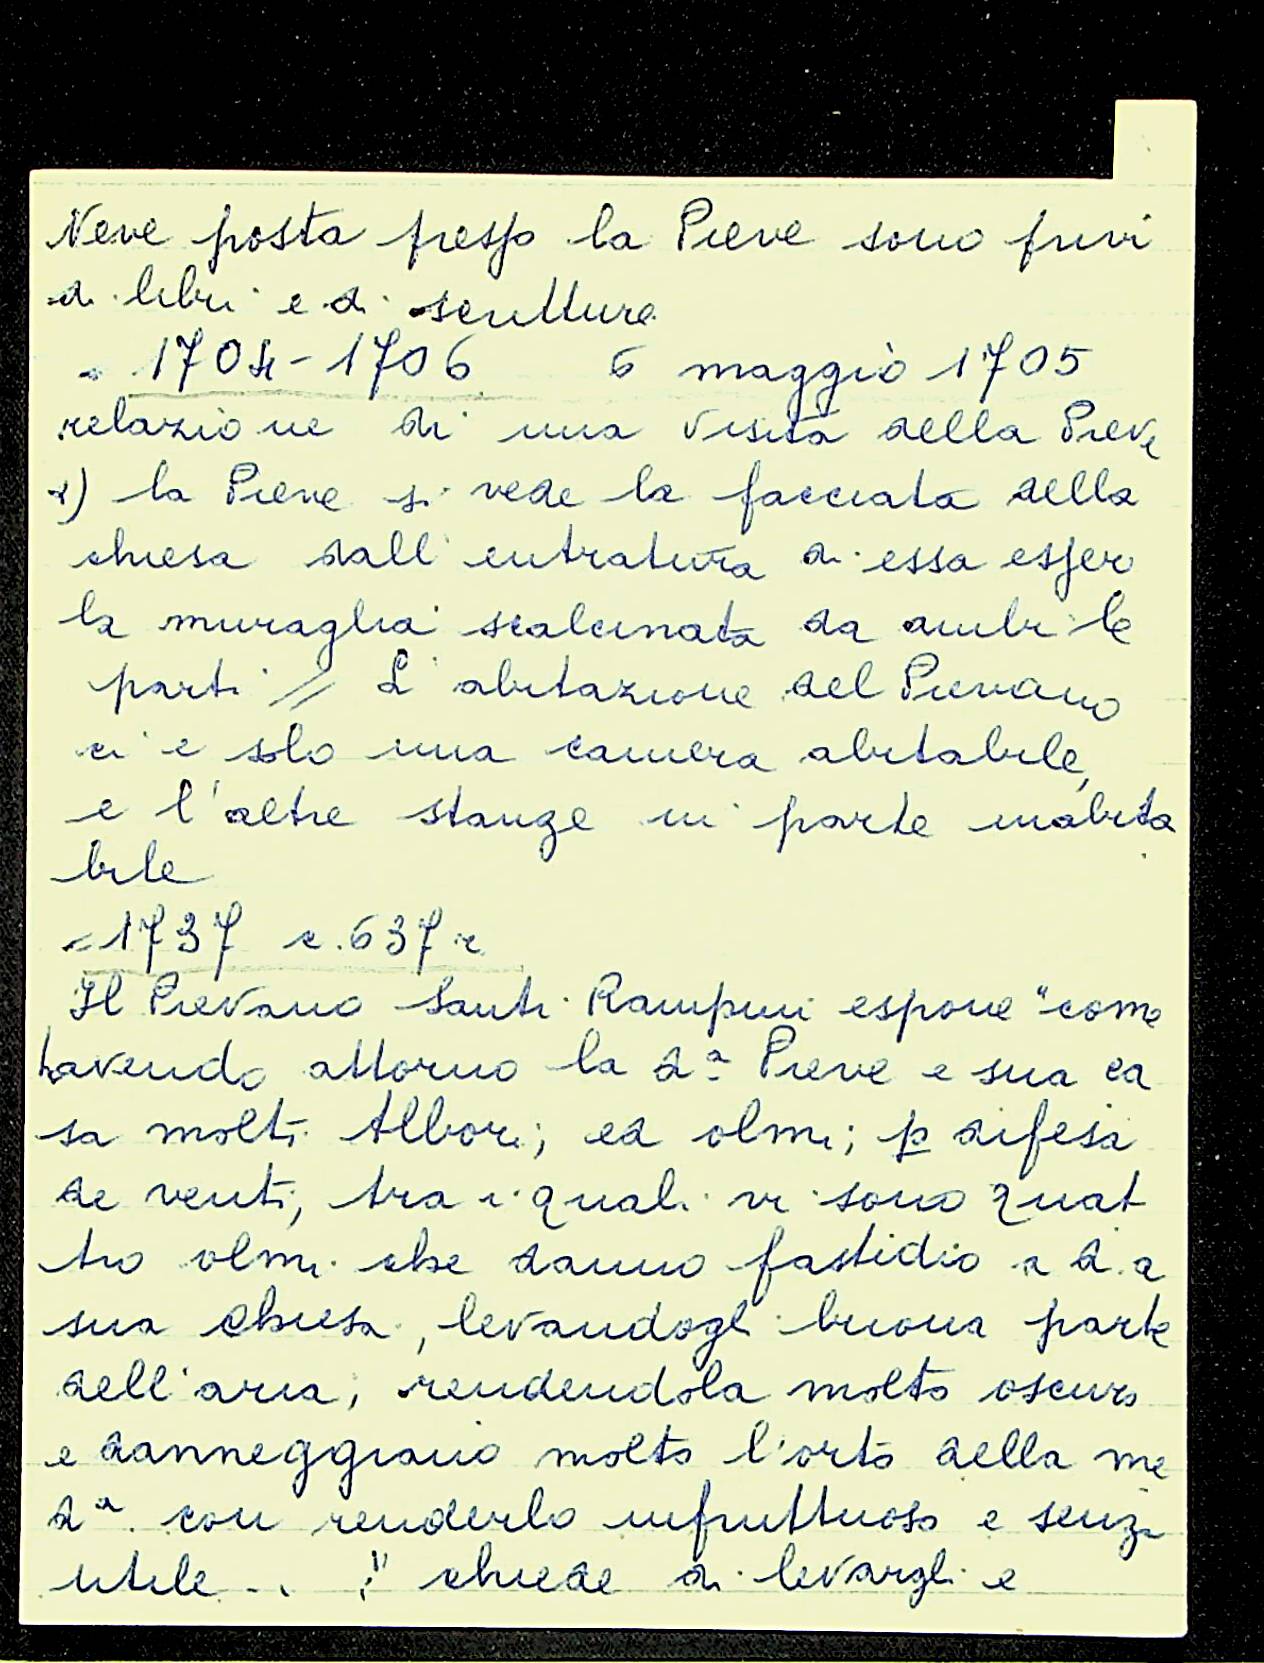 Neve posta presso la Pieve sono privi
di libri e di scritture
= 1704-1706 6 maggio 1705
relazione di una visita della Pieve
1) la Pieve si vede la facciata della
chiesa dall'entratura di essa esser
la muraglia scalcinata da ambi le
parti // L'abitazione del Pievano
ci è solo una camera abitabile,
e l'altre stanze in parte inabita
bile
=1737 c.637r
Il Pievano Santi Rampini espone "come
havendo attorno la d.ª Pieve e sua ca
sa molti Albori; ed olmi; p difesa
de venti, tra i quali vi sono quat
tro olmi che danno fastidio a d.a
sua Chiesa, levandogli buona parte
dell'aria, rendendola molto oscura
e danneggiano molto l'orto della me
d.ª con renderlo infruttuoso e senza
utile .. ;" chiede di levargli e